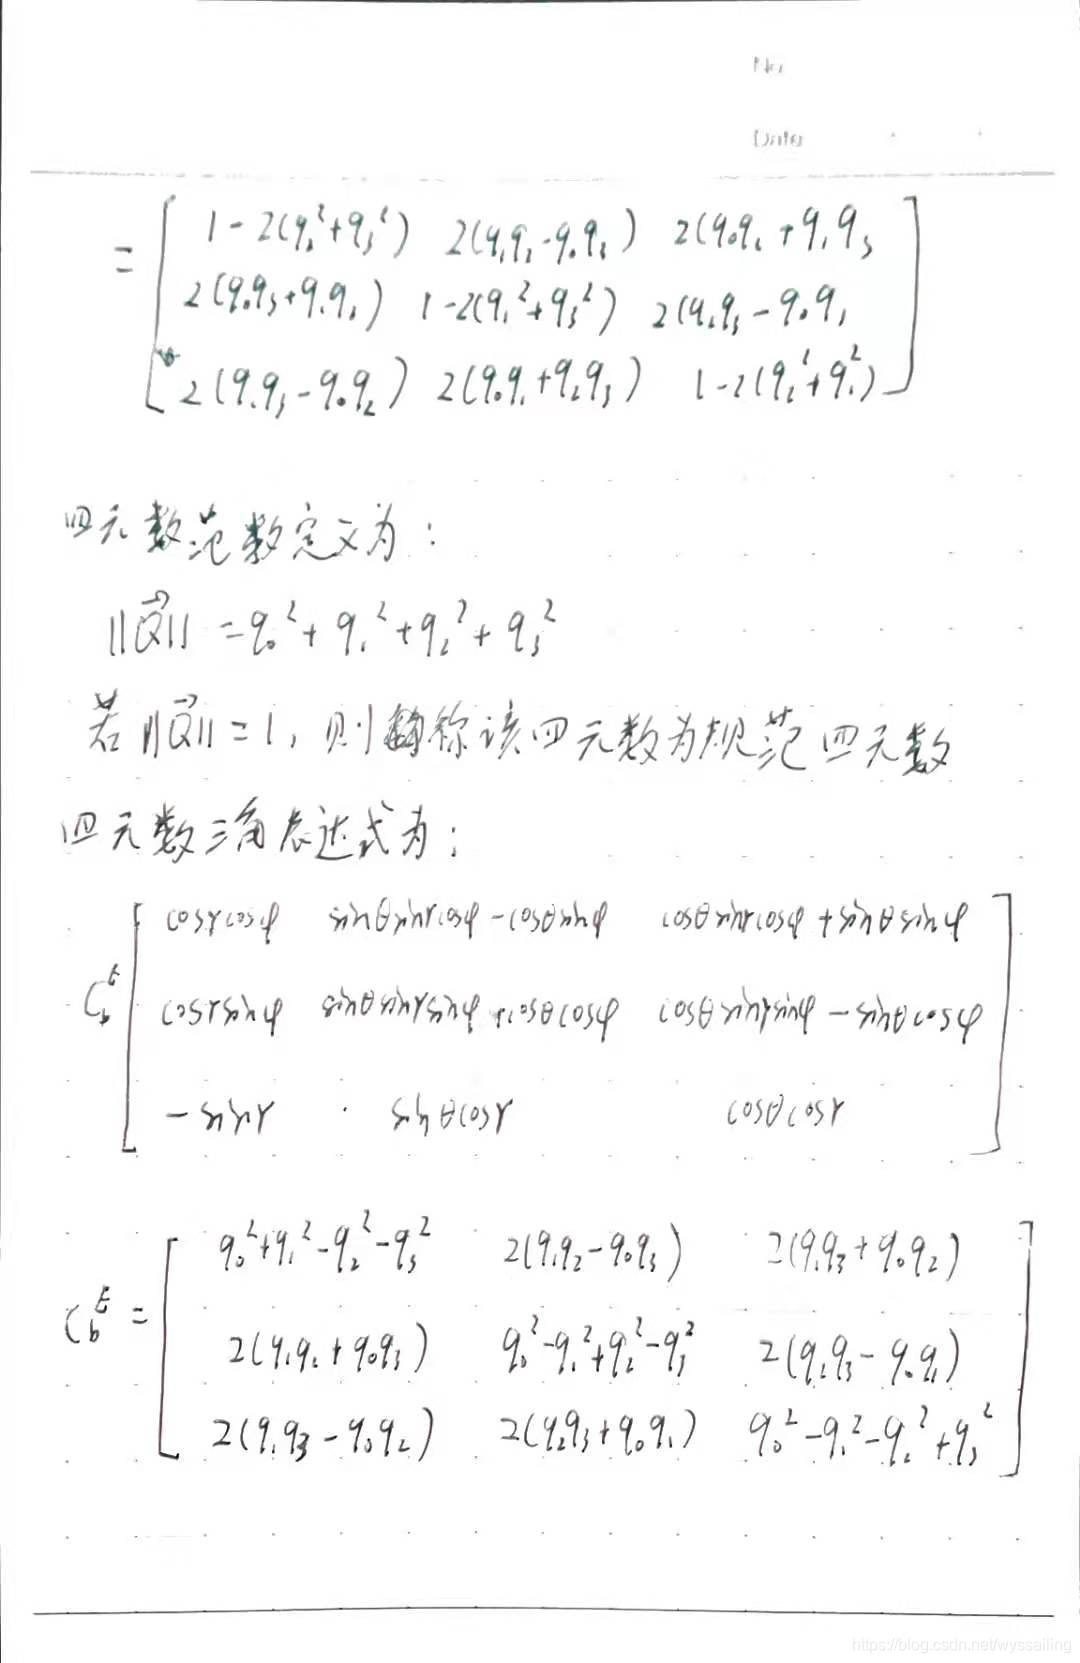 No
Date
= [ 1-2(q₂²+q₃²) 2(q₁q₂-q₀q₃) 2(q₀q₂+q₁q₃
2(q₀q₃+q₁q₂) 1-2(q₁²+q₃²) 2(q₂q₃-q₀q₁
2(q₁q₃-q₀q₂) 2(q₀q₁+q₂q₃) 1-2(q₂²+q₁²) ]
四元数范数定义为:
||Q⃗|| = q₀²+q₁²+q₂²+q₃²
若||Q⃗||=1, 则称该四元数为规范四元数
四元数三角表达式为:
C_b^E [ cosγcosφ sinθsinγcosφ-cosθsinφ cosθsinγcosφ+sinθsinφ
cosγsinφ sinθsinγsinφ+cosθcosφ cosθsinγsinφ-sinθcosφ
-sinγ sinθcosγ cosθcosγ ]
C_b^E = [ q₀²+q₁²-q₂²-q₃² 2(q₁q₂-q₀q₃) 2(q₁q₃+q₀q₂)
2(q₁q₂+q₀q₃) q₀²-q₁²+q₂²-q₃² 2(q₂q₃-q₀q₁)
2(q₁q₃-q₀q₂) 2(q₂q₃+q₀q₁) q₀²-q₁²-q₂²+q₃² ]
https://blog.csdn.net/wyssailing